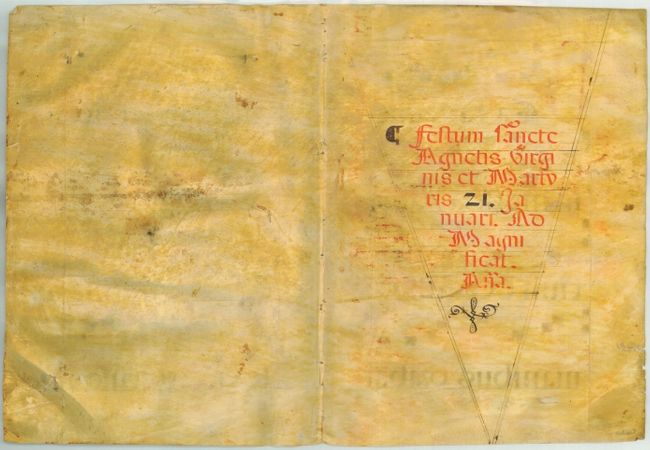 ¶ Festum sancte
Agnetis Virgi
nis et Marty
ris 21. Ja
nuari. Ad
Magni
ficat.
Aña.
manibus